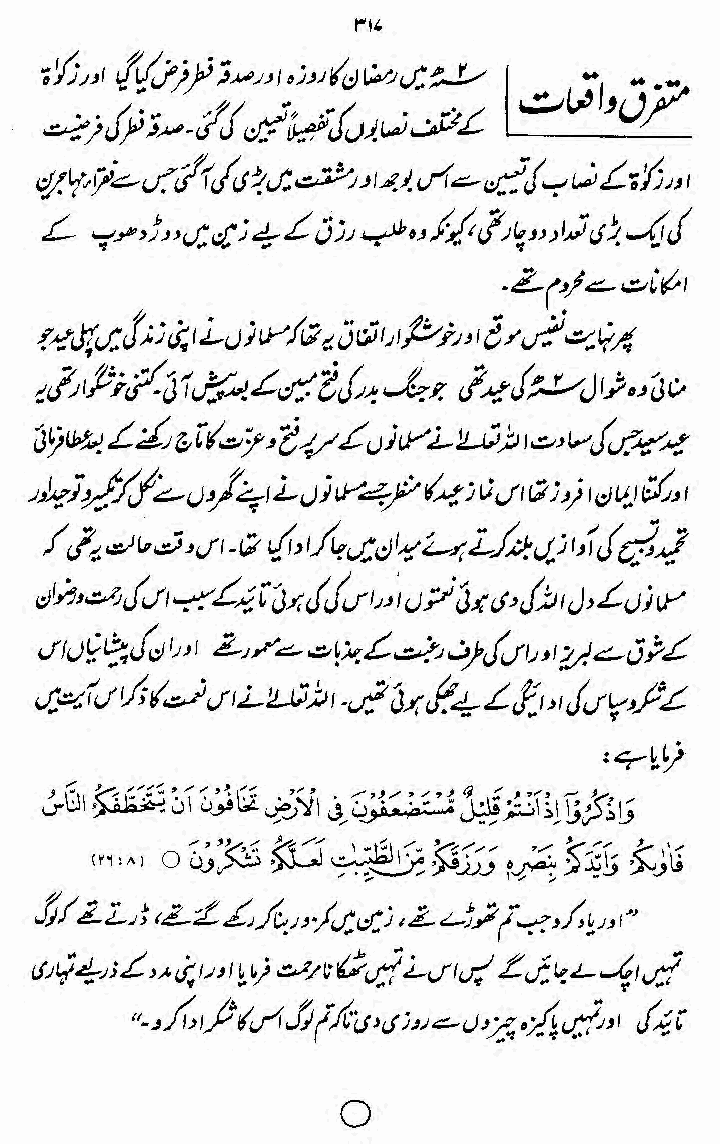 ۳۱۷
متفرق واقعات
۲ھ میں رمضان کا روزہ اور صدقہ فطر فرض کیا گیا اور زکوٰۃ
کے مختلف نصابوں کی تفصیلاً تعیین کی گئی۔ صدقہ فطر کی فرضیت
اور زکوٰۃ کے نصاب کی تعیین سے اس بوجھ اور مشقت میں بڑی کمی آگئی جس سے فقراء مہاجرین
کی ایک بڑی تعداد دوچار تھی، کیونکہ وہ طلب رزق کے لیے زمین میں دوڑ دھوپ کے
امکانات سے محروم تھے۔
پھر نہایت نفیس موقع اور خوشگوار اتفاق یہ تھا کہ مسلمانوں نے اپنی زندگی میں پہلی عید جو
منائی وہ شوال ۲ھ کی عید تھی جو جنگ بدر کی فتح مبین کے بعد پیش آئی۔ کتنی خوشگوار تھی یہ
عید سعید جس کی سعادت اللہ تعالےٰ نے مسلمانوں کے سر پر فتح و عزت کا تاج رکھنے کے بعد عطا فرمائی
اور کتنا ایمان افروز تھا اس نماز عید کا منظر جسے مسلمانوں نے اپنے گھروں سے نکل کر تکبیر و توحید اور
تحمید و تسبیح کی آوازیں بلند کرتے ہوئے میدان میں جا کر ادا کیا تھا۔ اس وقت حالت یہ تھی کہ
مسلمانوں کے دل اللہ کی دی ہوئی نعمتوں اور اس کی کی ہوئی تائید کے سبب اس کی رحمت و رضوان
کے شوق سے لبریز اور اس کی طرف رغبت کے جذبات سے معمور تھے اور ان کی پیشانیاں اس
کے شکر و سپاس کی ادائیگی کے لیے جھکی ہوئی تھیں۔ اللہ تعالےٰ نے اس نعمت کا ذکر اس آیت میں
فرمایا ہے:
وَاذْكُرُوْٓا اِذْ اَنْتُمْ قَلِيْلٌ مُّسْتَضْعَفُوْنَ فِى الْاَرْضِ تَخَافُوْنَ اَنْ يَّتَخَطَّفَكُمُ النَّاسُ
فَاٰوٰىكُمْ وَاَيَّدَكُمْ بِنَصْرِهٖ وَرَزَقَكُمْ مِّنَ الطَّيِّبٰتِ لَعَلَّكُمْ تَشْكُرُوْنَ ○ (۲۶:۸)
”اور یاد کرو جب تم تھوڑے تھے، زمین میں کمزور بنا کر رکھے گئے تھے، ڈرتے تھے کہ لوگ
تمہیں اچک لے جائیں گے پس اس نے تمہیں ٹھکانا مرحمت فرمایا اور اپنی مدد کے ذریعے تمہاری
تائید کی اور تمہیں پاکیزہ چیزوں سے روزی دی تاکہ تم لوگ اس کا شکر ادا کرو۔“